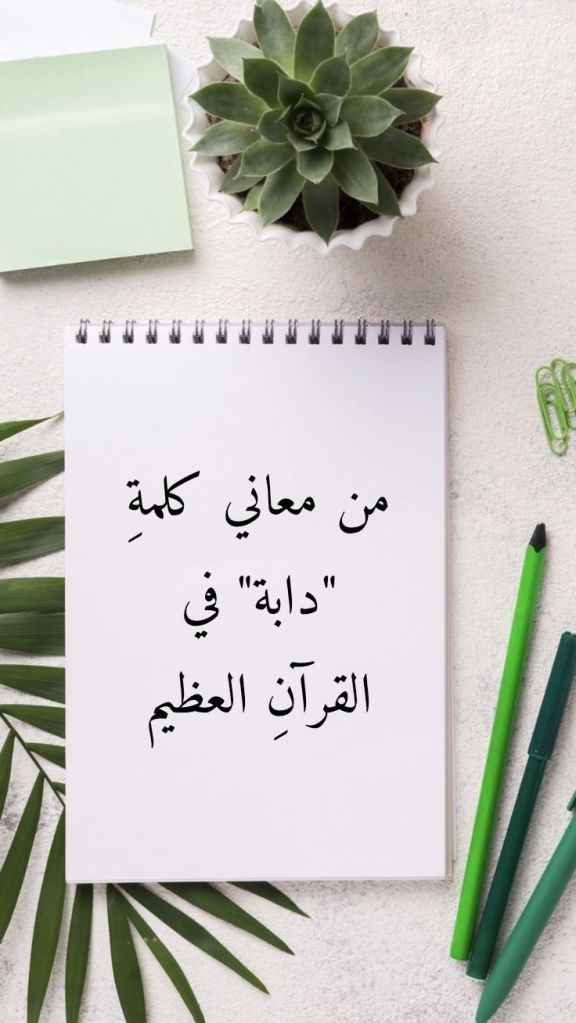 من معاني كلمةِ
"دابة" في
القرآنِ العظيم